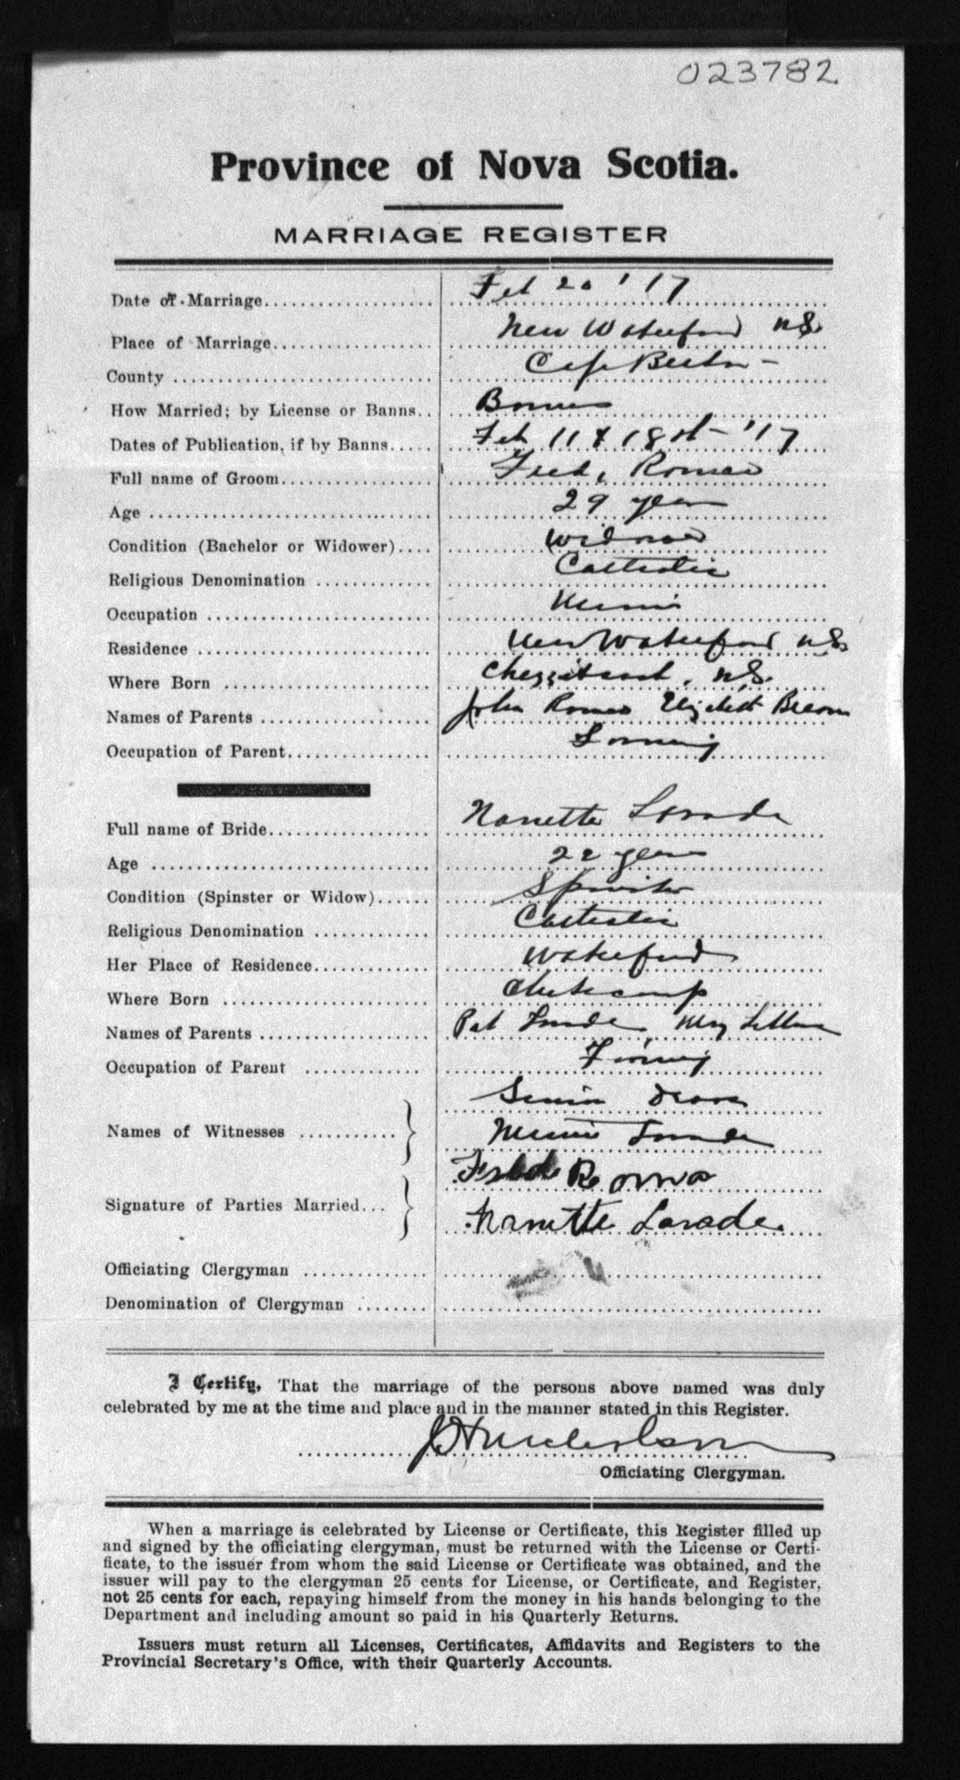 023782
Province of Nova Scotia.
MARRIAGE REGISTER
Date of Marriage Feb 20 '17
Place of Marriage New Waterford N.S.
County Cape Breton
How Married; by License or Banns Banns
Dates of Publication, if by Banns Feb 11 & 18th - '17
Full name of Groom Fred, Romeo
Age 29 years
Condition (Bachelor or Widower) Widower
Religious Denomination Catholic
Occupation
Residence New Waterford N.S.
Where Born N.S.
Names of Parents John Romeo
Occupation of Parent
Full name of Bride Nanette Larade
Age 22 years
Condition (Spinster or Widow) Spinster
Religious Denomination Catholic
Her Place of Residence Waterford
Where Born Cheticamp
Names of Parents Pat Larade
Occupation of Parent
Names of Witnesses
Larade
Signature of Parties Married
Nanette Larade.
Officiating Clergyman
Denomination of Clergyman
I Certify, That the marriage of the persons above named was duly
celebrated by me at the time and place and in the manner stated in this Register.
Officiating Clergyman.
When a marriage is celebrated by License or Certificate, this Register filled up
and signed by the officiating clergyman, must be returned with the License or Certi-
ficate, to the issuer from whom the said License or Certificate was obtained, and the
issuer will pay to the clergyman 25 cents for License, or Certificate, and Register,
not 25 cents for each, repaying himself from the money in his hands belonging to the
Department and including amount so paid in his Quarterly Returns.
Issuers must return all Licenses, Certificates, Affidavits and Registers to the
Provincial Secretary's Office, with their Quarterly Accounts.